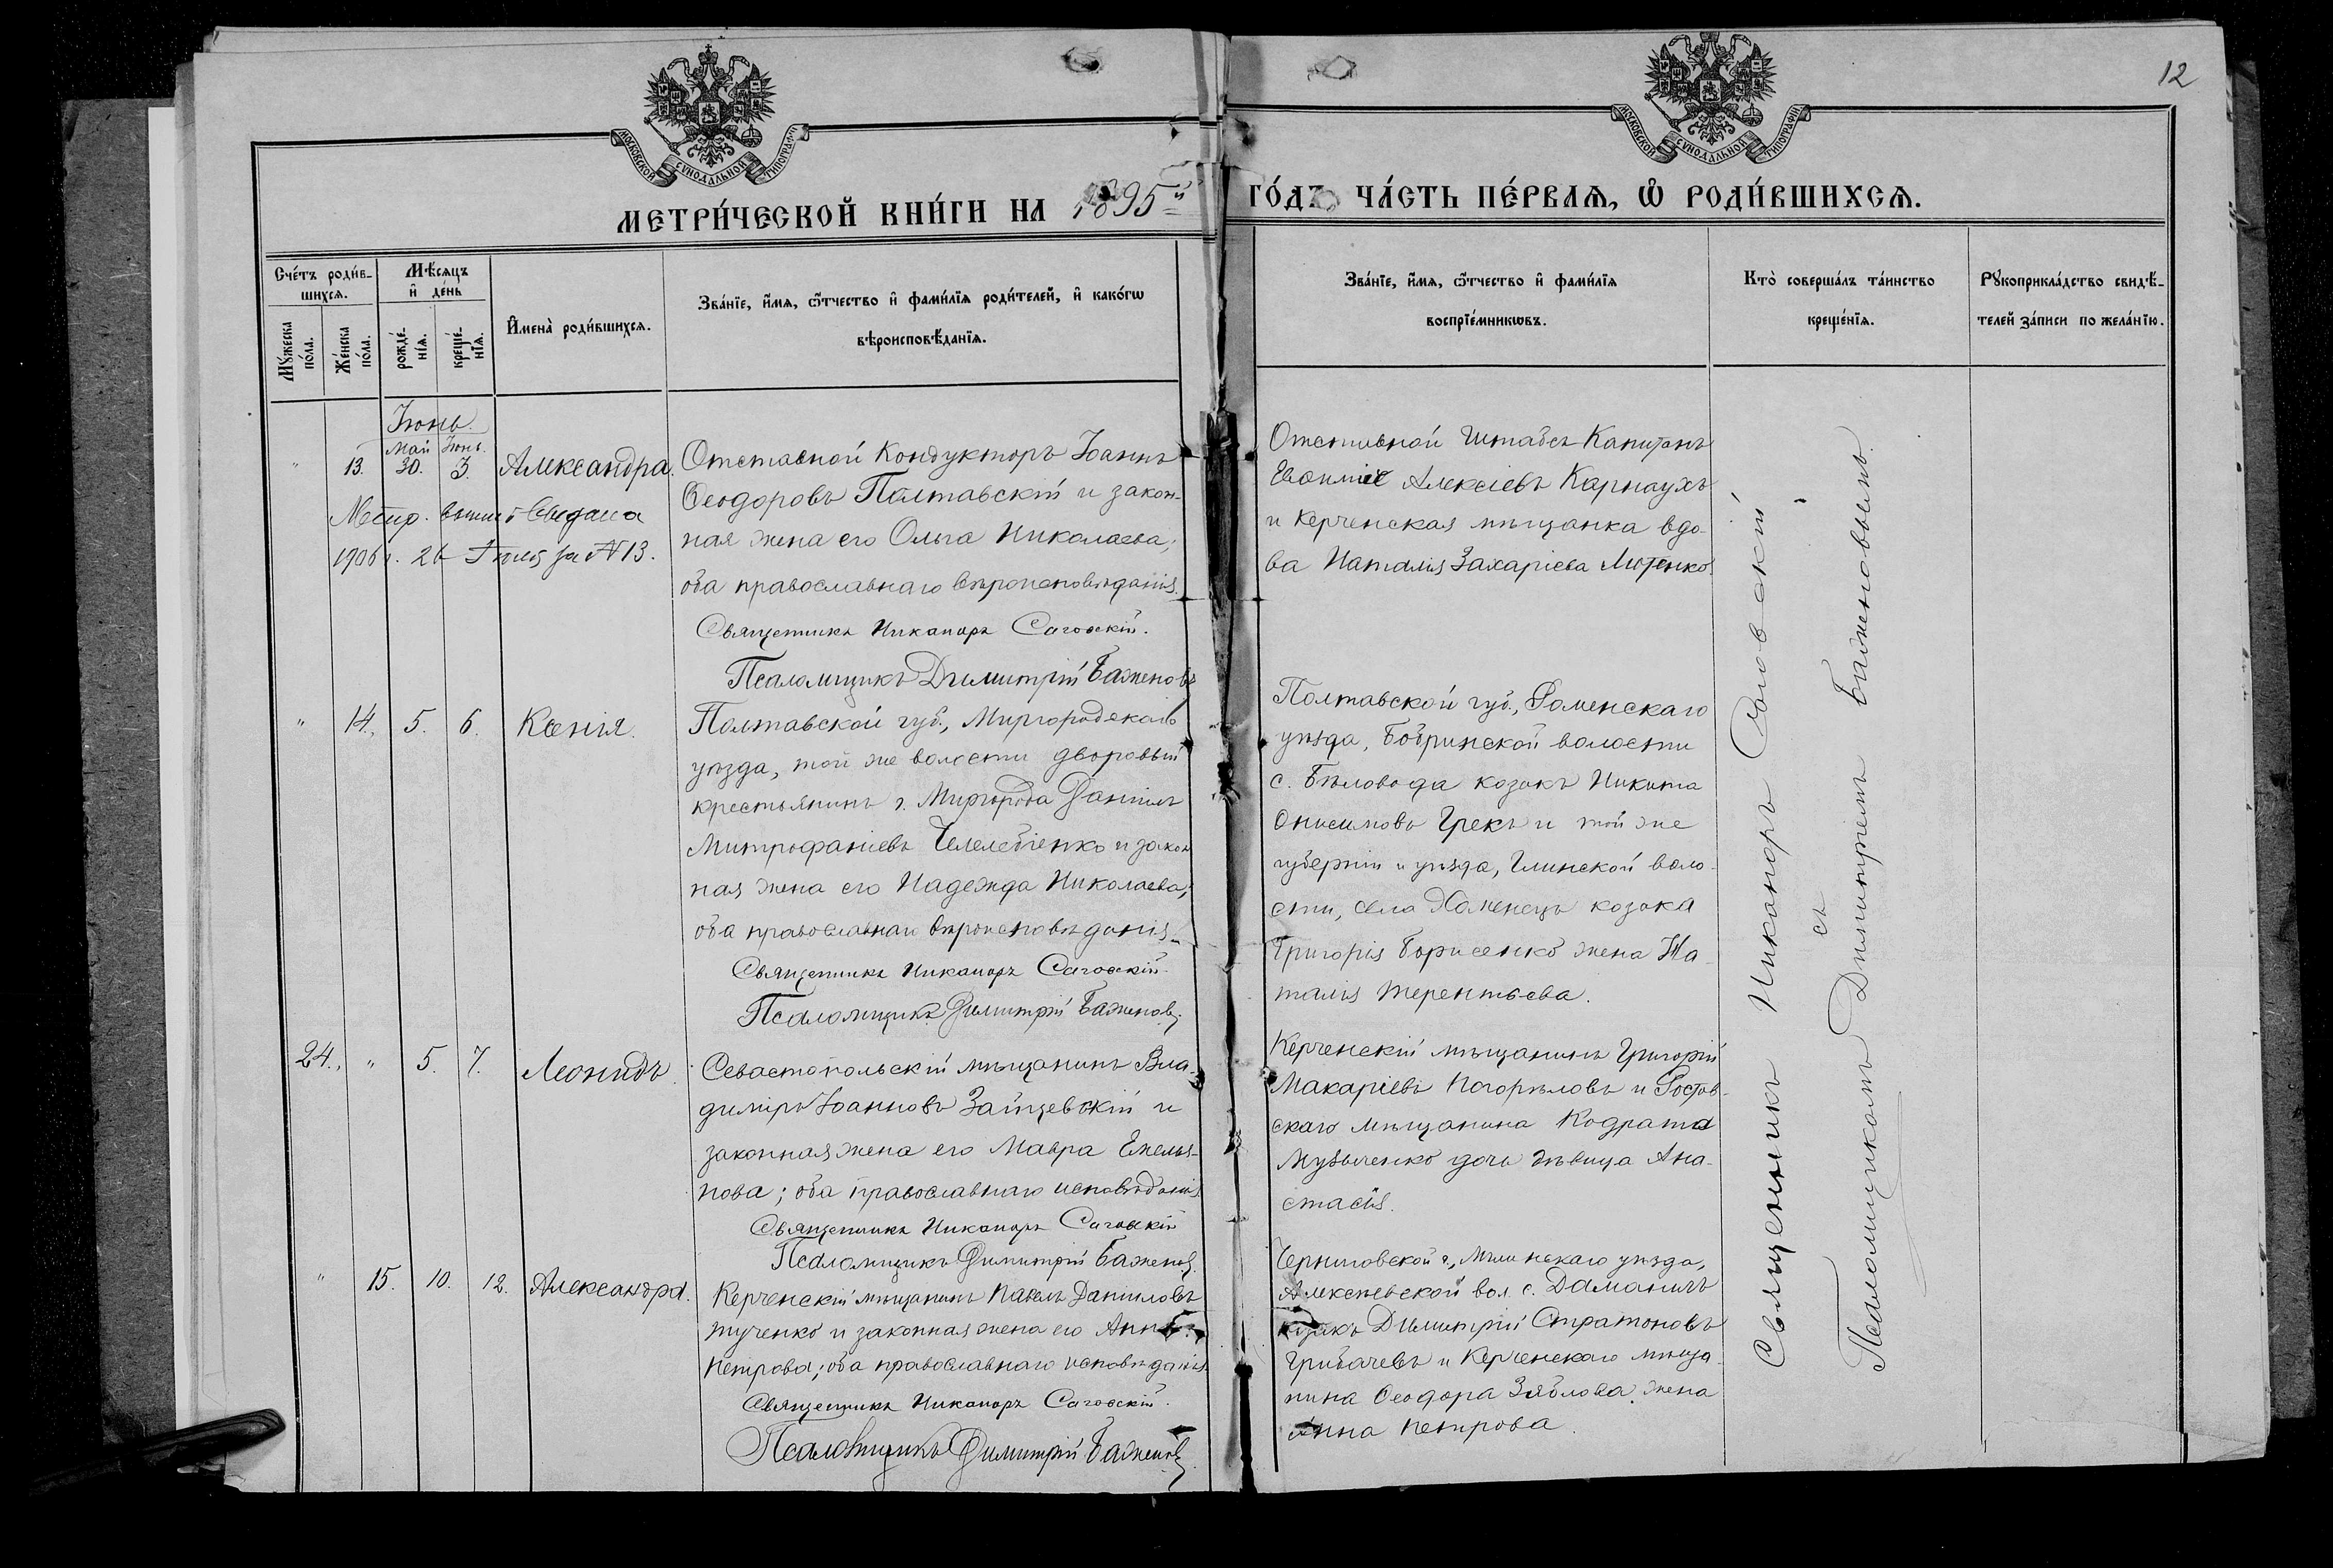 12
МОСКОВСКОЙ СѴНОДАЛЬНОЙ ТИПОГРАФІИ
МОСКОВСКОЙ СѴНОДАЛЬНОЙ ТИПОГРАФІИ
МЕТРИ́ЧЕСКОЙ КНИ́ГИ НА 1895й
ГО́ДЪ, ЧА́СТЬ ПЕ́РВАѦ, Ѿ РОДИ́ВШИХСѦ.
Сче́тъ роди́в-
шихсѧ.
Мꙋ́жеска
по́ла.
Же́нска
по́ла.
Мѣ́сѧцъ
и҆ де́нь
рожде́-
нїѧ.
креще́-
нїѧ.
И҆мена̀ роди́вшихсѧ.
Зва́нїе, и҆́мѧ, ѻ҆́тчество и҆ фами́лїѧ роди́телей, и҆ како́гѡ
вѣроисповѣ́данїѧ.
Зва́нїе, и҆́мѧ, ѻ҆́тчество и҆ фами́лїѧ
воспрїе́мникѡвъ.
Кто̀ соверша́лъ та́инство
креще́нїѧ.
Рꙋкоприкла́дство свидѣ́-
телей за́писи по жела́нїю.
Іюнь.
Май Іюнь.
" 13. 30. 3. Александра.
Метр. выпись выдана
1906 г. 26 Іюля за № 13.
Отставной Кондукторъ Іоаннъ
Ѳеодоровъ Полтавскій и закон-
ная жена его Ольга Николаева;
оба православнаго вѣроисповѣданія.
Священникъ Никаноръ Саговскій.
Псаломщикъ Димитрій Баженовъ
Отставной Штабсъ-Капитанъ
Евѳимій Алексіевъ Карнаухъ
и Керченская мѣщанка вдо-
ва Наталія Захаріева Лютенко.
" 14. 5. 6. Ксенія.
Полтавской губ., Миргородскаго
уѣзда, той же волости дворовый
крестьянинъ г. Миргорода Даніилъ
Митрофаніевъ Челебіенко и закон
ная жена его Надежда Николаева;
оба православнаго вѣроисповѣданія.
Священникъ Никаноръ Саговскій.
Псаломщикъ Димитрій Баженовъ
Полтавской губ., Роменскаго
уѣзда, Бобринской волости
с. Бѣловода козакъ Никита
Онисимовъ Грекъ и той же
губерніи и уѣзда, Глинской воло-
сти, села козака
Григорія Борисенко жена На-
талія Терентьева.
24. " 5. 7. Леонидъ.
Севастопольскій мѣщанинъ Вла-
диміръ Іоанновъ Зайцевскій и
законная жена его Мавра Емелья-
нова; оба православнаго исповѣданія
Священникъ Никаноръ Саговскій
Псаломщикъ Димитрій Баженовъ.
Керченскій мѣщанинъ Григорій
Макаріевъ Погорѣловъ и Ростов-
скаго мѣщанина Кодрата
Музыченко дочь дѣвица Ана-
стасія.
" 15. 10. 12. Александра.
Керченскій мѣщанинъ Павелъ Даниловъ
Тученко и законная жена его Анна
Петрова; оба православнаго исповѣданія.
Священникъ Никаноръ Саговскій.
Псаломщикъ Димитрій Баженовъ
Черниговской г., Мглинскаго уѣзда,
Алексѣевской вол. с. Даманичъ
козакъ Димитрій Стратоновъ
Грибачевъ и Керченскаго мѣща-
нина Ѳеодора Зяблова жена
Анна Петрова.
Священникъ Никаноръ Саговскій
съ
Псаломщикомъ Димитріемъ Баженовымъ.